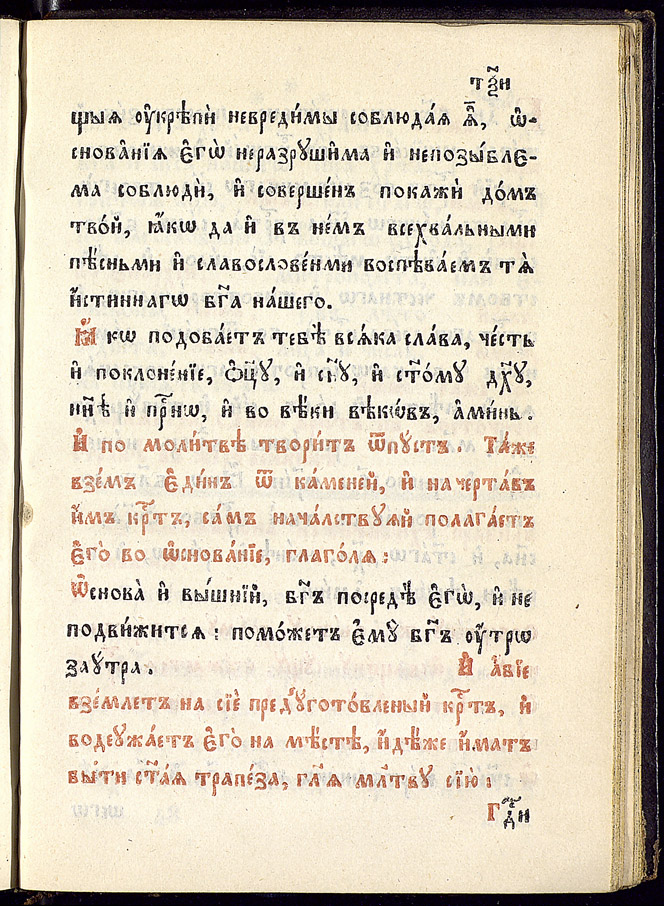 тѯ҃и
щыѧ ᲂу҆крѣпѝ невреди́мы соблюда́ѧ ѧ҆̀, ѡ҆-
снова́нїѧ є҆гѡ̀ неразруши́ма и҆ непозы́бле-
ма соблюдѝ, и҆ соверше́нъ покажѝ до́мъ
тво́й, ꙗ҆́кѡ да и҆ въ не́мъ всехва́льными
пѣ́сньми и҆ славосло́вєнми воспѣва́емъ тѧ̀
и҆́стиннагѡ бг҃а на́шего.
Ꙗ҆́кѡ подоба́етъ тебѣ̀ всѧ́ка сла́ва, че́сть
и҆ поклоне́нїе, ѻ҆ц҃ꙋ̀, и҆ сн҃ꙋ, и҆ ст҃о́мꙋ дх҃ꙋ,
нн҃ѣ и҆ при́снѡ, и҆ во вѣ́ки вѣкѡ́въ, а҆ми́нь.
И҆ по моли́твѣ твори́тъ ѿпꙋ́стъ. Та́же
взе́мъ є҆ди́нъ ѿ ка́меней, и҆ начерта́въ
и҆́мъ крⷭ҇тъ, са́мъ нача́лствꙋѧй полага́етъ
є҆го̀ во ѡ҆снова́нїе, глаго́лѧ:
Ѡ҆снова̀ и҆ вы́шнїй, бг҃ъ посредѣ̀ є҆гѡ̀, и҆ не
подви́житсѧ: помо́жетъ є҆мꙋ̀ бг҃ъ ᲂу҆́трѡ
заꙋ́тра. И҆ а҆́бїе
взе́млетъ на сїѐ предꙋгото́вленый крⷭ҇тъ, и҆
водрꙋжа́етъ є҆го̀ на мѣ́стѣ, и҆дѣ́же и҆́мать
бы́ти ст҃а́ѧ трапе́за, гл҃ѧ мл҃твꙋ сїю̀:
Гдⷭ҇и